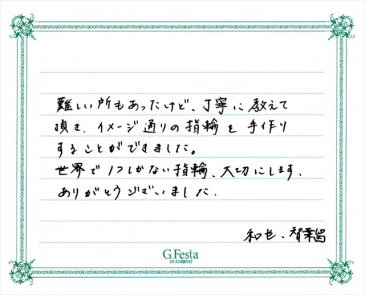 難しい所もあったけど、丁寧に教えて
頂き、イメージ通りの指輪を手作り
することができました。
世界で1つしかない指輪、大切にします。
ありがとうございました。
和也、智業留
G.Festa